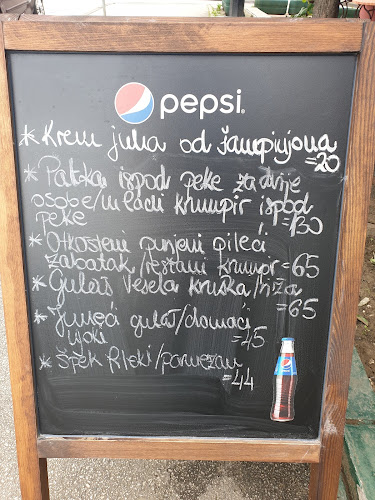 pepsi
* Krem juha od šampinjona
=20
* Patka ispod peke za dvije
osobe/mladi krumpir ispod
peke = 130
* Otkošteni punjeni pileći
zabatak/restani krumpir =65
* Gulaš vesela kruška/riža
=65
* Juneći gulaš/domaći
njoki =45
* Špek fileki/parmezan
=44
pepsi